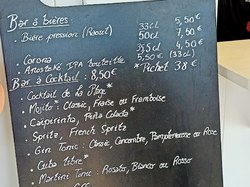 Bar à bières
Bière pression 33cl 5,50€
50cl 7,50€
Corona 35cl 4,50€
IPA bouteille (33cl) 7,50€
* Pichet 38€
Bar à Cocktail : 8,50€
Cocktail de La Plage*
Mojito* : Classic, Fraise ou Framboise
Caïpirinha, Piña Colada*
Spritz, French Spritz
Gin Tonic : Classic, Concombre, Pamplemousse ou Rose
Cuba libre*
Martini Tonic : Rosato, Bianco ou Rosso